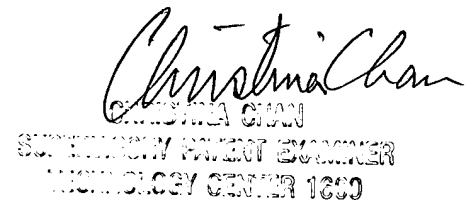 Christina Chan
CHRISTINA CHAN
SUPERVISORY PATENT EXAMINER
TECHNOLOGY CENTER 1600